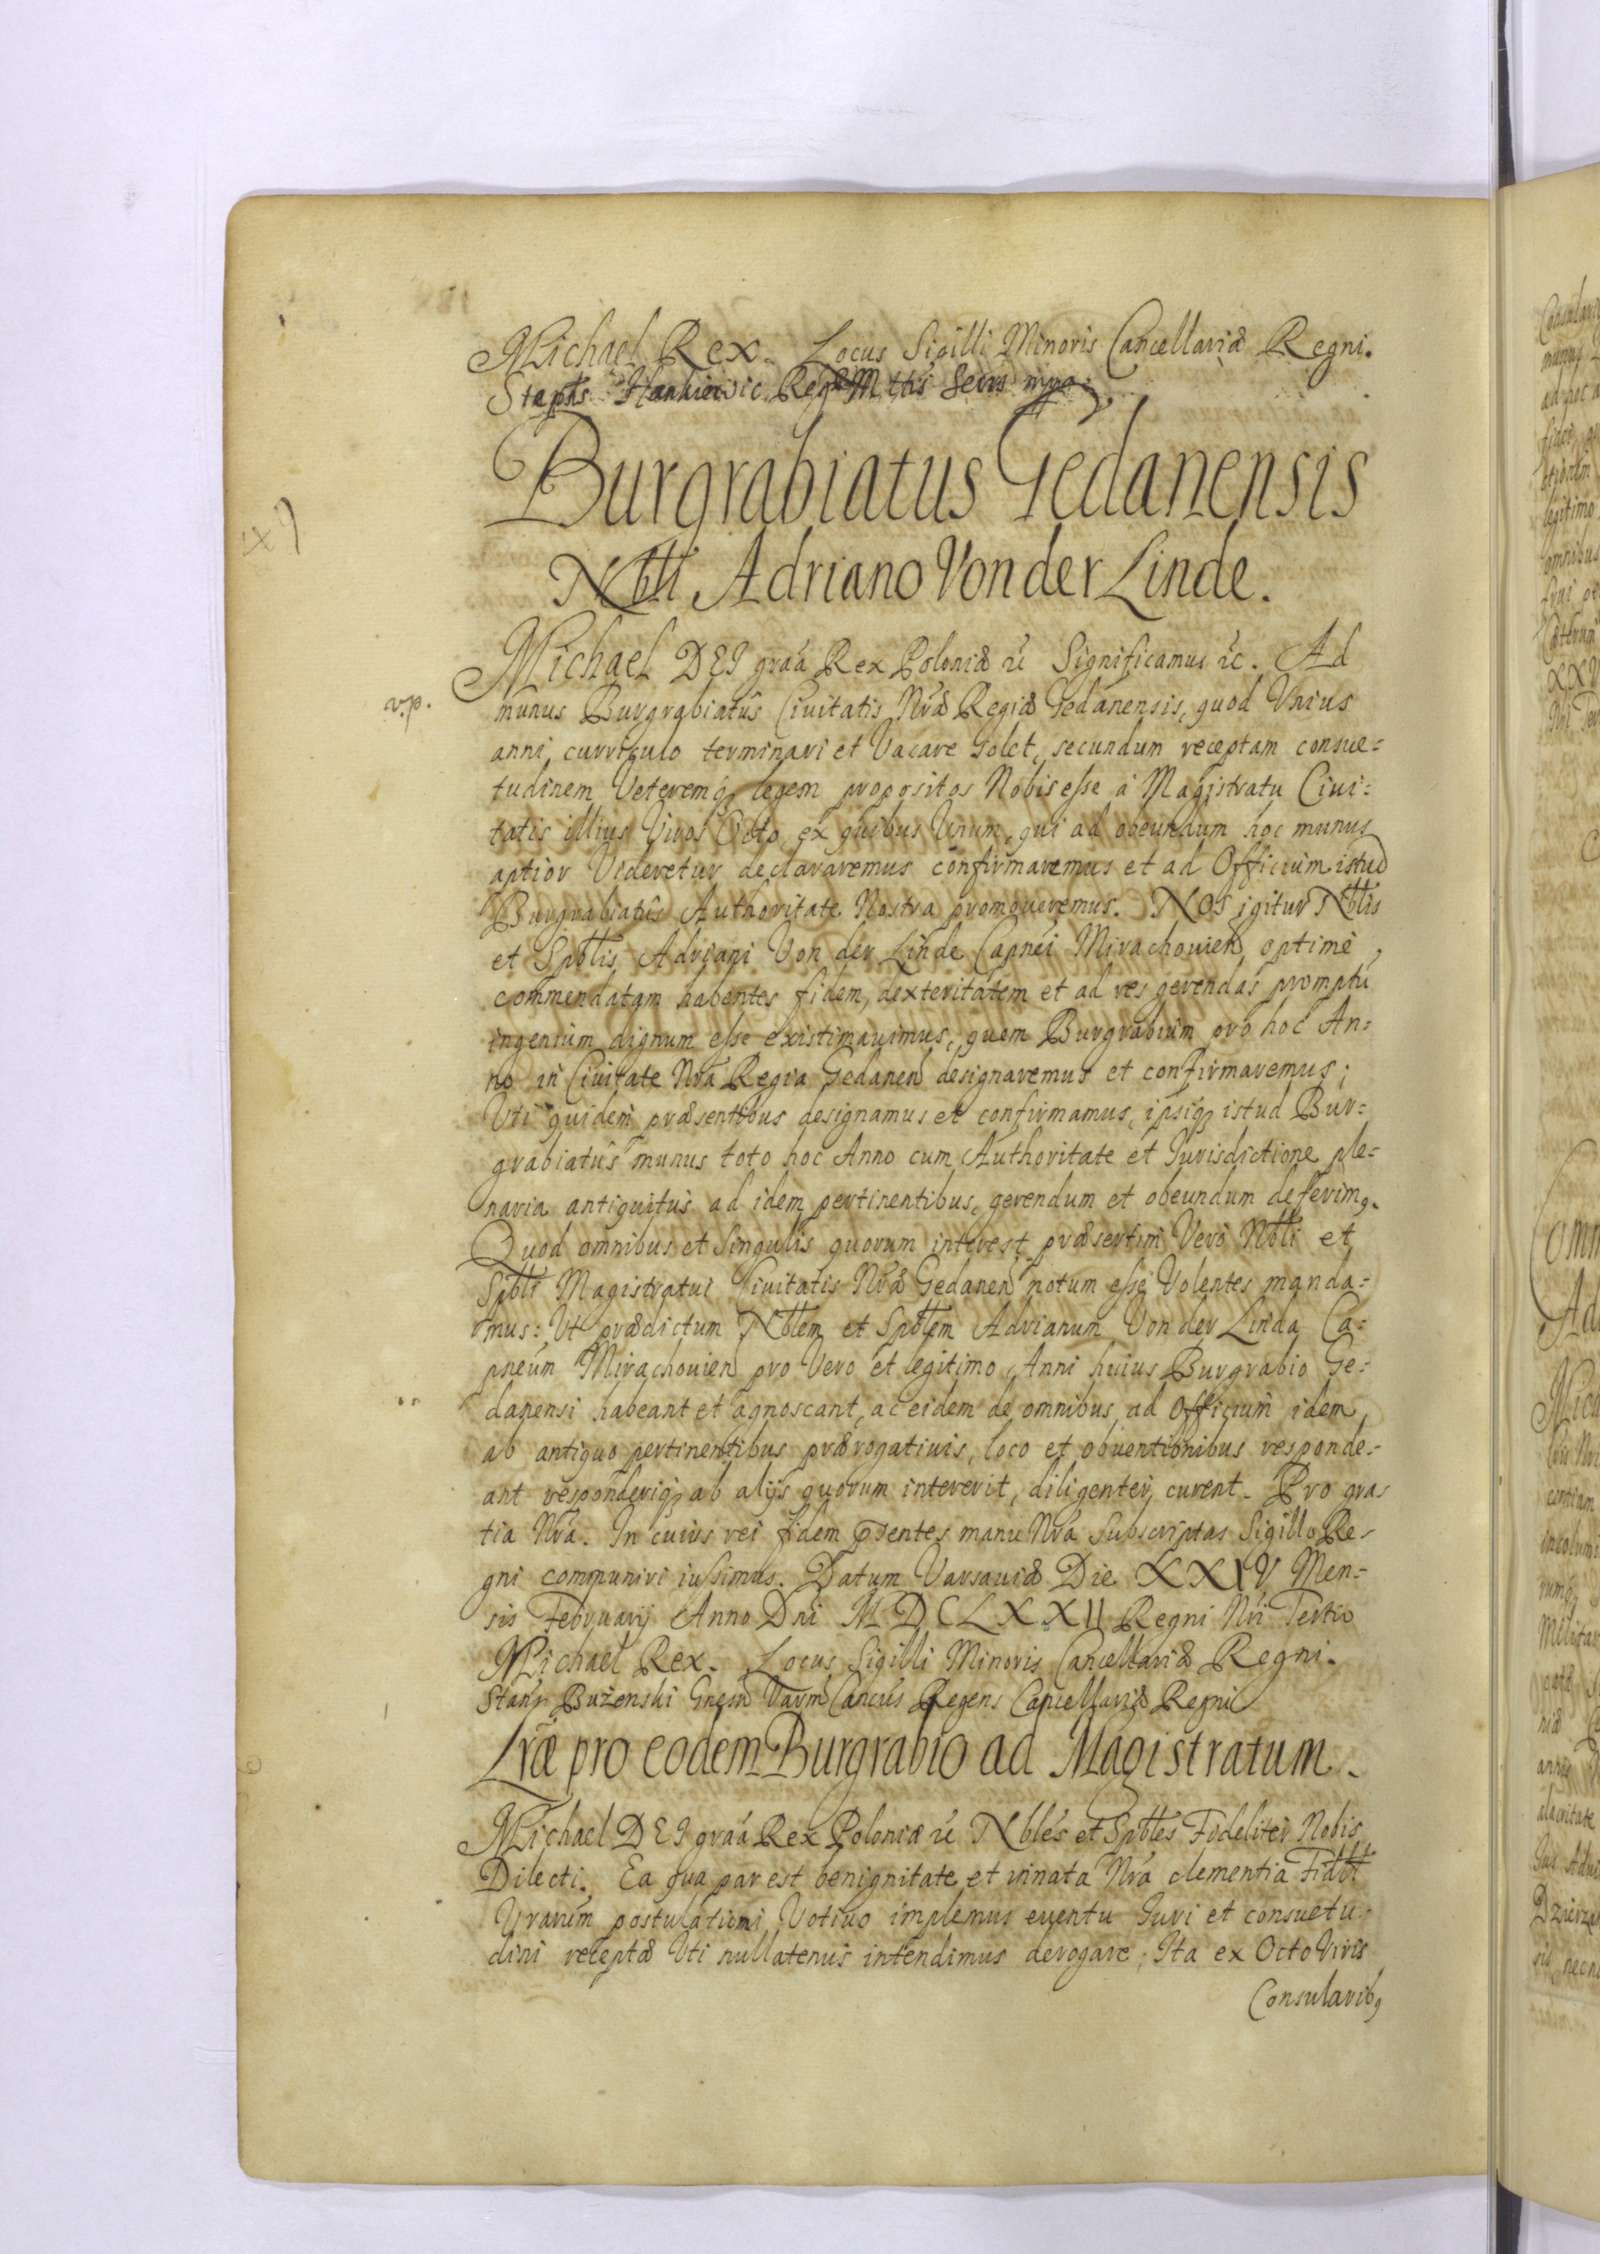 Michael Rex. Locus Sigilli Minoris Cancellariæ Regni.
Stephs Hankiewic Regæ Mttis Secrs mpa
Burgrabiatus Gedanensis
Nbli Adriano Von der Linde.
Michael DEI graâ Rex Poloniæ &c Significamus &c. Ad
v.p.
munus Burgrabiatûs Civitatis Nræ Regiæ Gedanensis, quod Vnius
anni curriculo terminari et Vacare solet, secundum receptam consue-
tudinem Veteremq legem propositos Nobis esse à Magistratu Ciui-
tatis illius Viros Octo, ex quibus Vnum, qui ad obeundum hoc munus
aptior Videretur declararemus confirmaremus et ad Officium istud
Burgrabiatûs Authoritate Nostra promoueremus. NOS igitur Nblis
et Spblis Adriani Von der Linde Capnei Mirachouien optimè
commendatam habentes fidem, dexteritatem et ad res gerendas promptũ
ingenium dignum esse existimauimus, quem Burgrabium pro hoc An-
no in Ciuitate Nrâ Regia Gedanen designaremus et confirmaremus;
Vti quidem præsentibus designamus et confirmamus, ipsiq istud Bur-
grabiatûs munus toto hoc Anno cum Authoritate et Jurisdictione ple-
naria antiquitus ad idem pertinentibus, gerendum et obeundum deferimq.
Quod omnibus et singulis quorum interest præsertim Verò Nbli et
Spbli Magistratui Ciuitatis Nræ Gedanen notum esse Volentes manda-
mus: Vt prædictum Nblem et Spblem Adrianum Von der Linda Ca-
pneum Mirachouien pro Vero et legitimo Anni huius Burgrabio Ge-
danensi habeant et agnoscant, ac eidem de omnibus ad Officium idem
ab antiquo pertinentibus prærogatiuis, loco et obuentionibus responde-
ant responderiq ab alijs quorum intererit, diligenter curent. Pro gra-
tia Nrâ. In cuius rei fidem pntes manu Nrâ subscriptas Sigillo Re-
gni communiri iussimus. Datum Varsauiæ Die XXIV Men-
sis Februarij Anno Dni MDCLXXII Regni Nri Tertio
Michael Rex. Locus Sigilli Minoris Cancellariæ Regni.
Stanis Bużenski Gnesn Varm Cancus Regens Cancellariæ Regni
Lræ pro eodem Burgrabio ad Magistratum.
Michael DEI graâ Rex Poloniæ &c Nbles et Spbles Fideliter Nobis
Dilecti. Ea qua par est benignitate et innata Nrâ clementia Fidbt
Vrarum postulationi Votiuo implemus euentu Juri et consuetu-
dini receptæ Vti nullatenus intendimus derogare; Ita ex Octo Viris
Consularibq